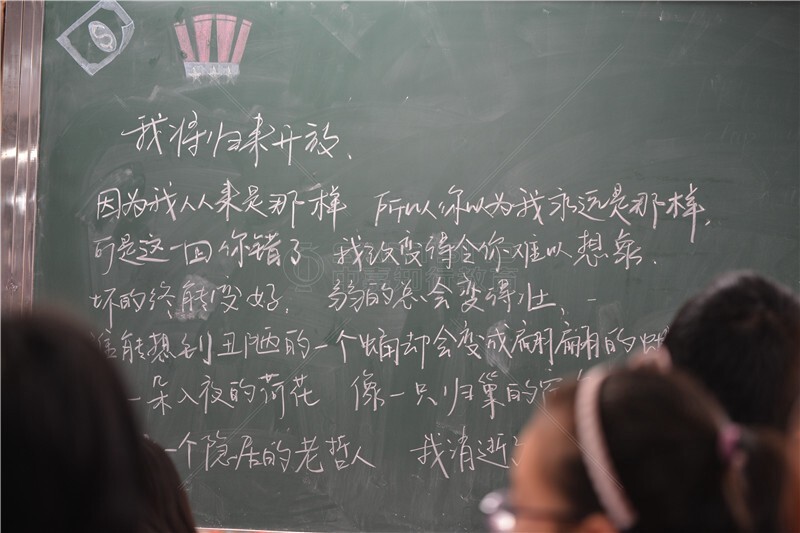 我将归来开放、
因为我从来是那样 所以你以为我永远是那样,
可是这一回你错了 我改变得令你难以想象.
坏的终能变好, 弱的总会变得壮,
谁能想到丑陋的一个蛹却会变成翩翩的
一朵入夜的荷花 像一只归巢的
一个隐居的老哲人 我消逝